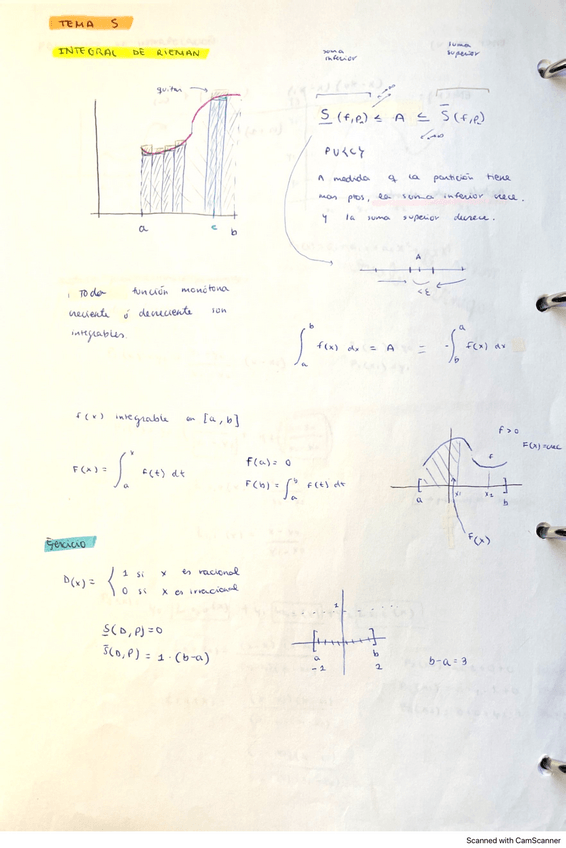 TEMA 5
INTEGRAL DE RIEMAN
suma inferior
suma superior
quitar
S(f,Pn) ≤ A ≤ S̄(f,Pn)
P ∪ {c}
A medida q la partición tiene
mas ptos, la suma inferior crece.
y la suma superior decrece.
a c b
A
<ε
Toda función monótona
creciente ó decreciente son
integrables.
∫ₐᵇ f(x) dx = A = -∫ᵇₐ f(x) dx
f(x) integrable en [a, b]
F(x) = ∫ₐˣ f(t) dt
F(a) = 0
F(b) = ∫ₐᵇ f(t) dt
F>0
F(x)=crec
f
a x₁ x₂ b
F(x)
Ejercicio
D(x) = { 1 si x es racional
0 si x es irracional
S(D,P)=0
S̄(D,P) = 1·(b-a)
1
a b
-1 2
b-a=3
Scanned with CamScanner